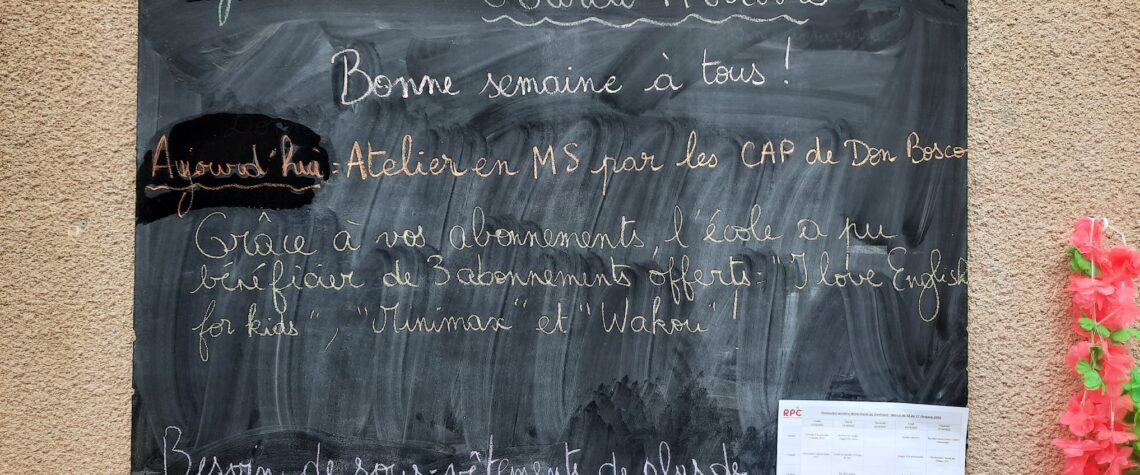 Bonne semaine à tous !
Aujourd'hui : Atelier en MS par les CAP de Don Bosco
Grâce à vos abonnements, l'école a pu
bénéficier de 3 abonnements offerts : "I love English
for kids", "Minimax" et "Wakou" !
Besoin de sous-vêtements de plus de
RPC